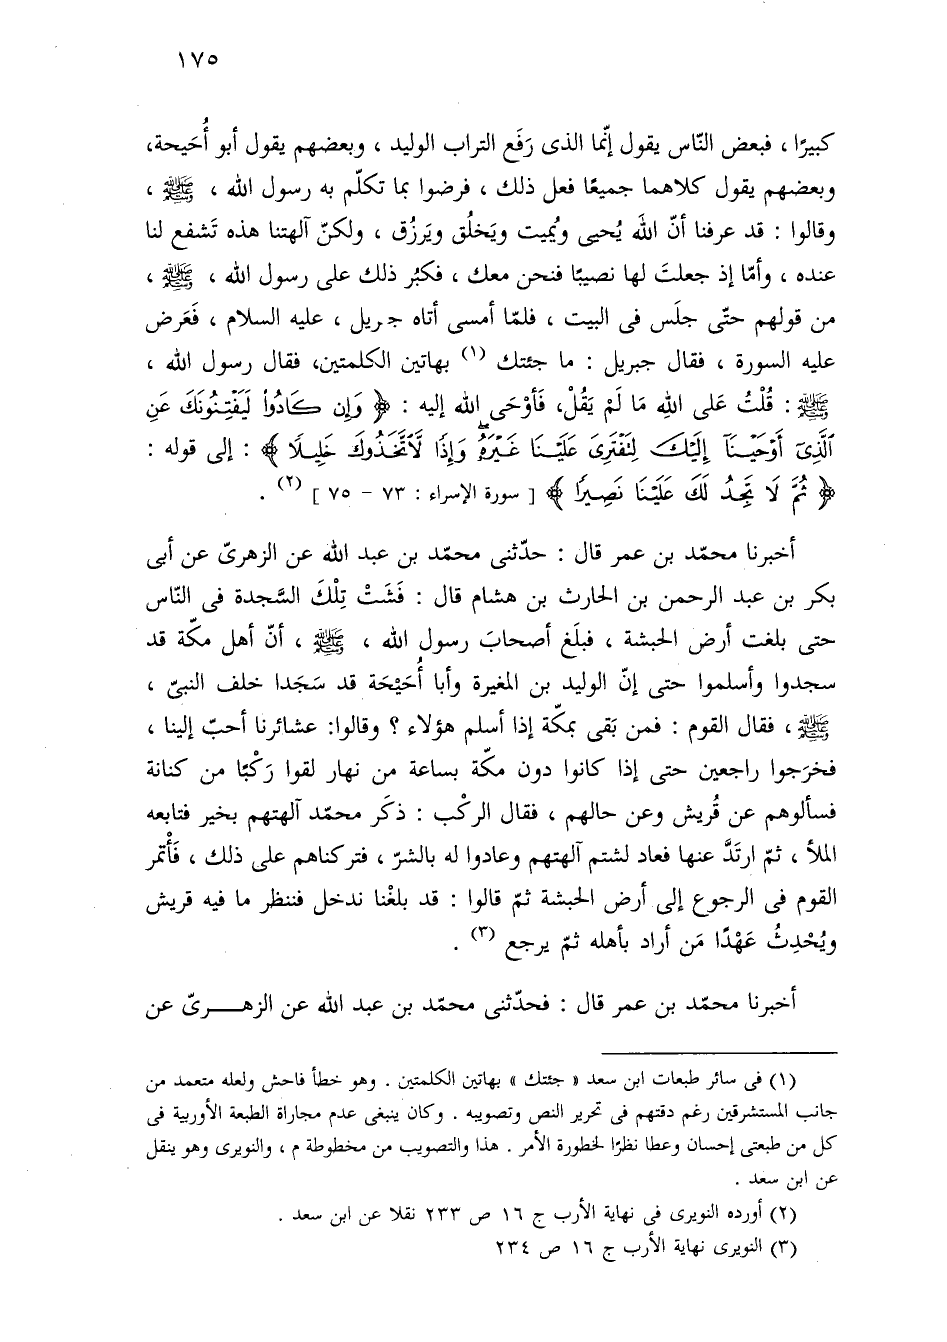 ١٧٥
كبيرًا ، فبعض النّاس يقول إنّما الذى رَفَع التراب الوليد ، وبعضهم يقول أبو أُحَيحة،
وبعضهم يقول كلاهما جميعًا فعل ذلك ، فرضوا بما تكلّم به رسول الله ، ﷺ ،
وقالوا : قد عرفنا أنّ اللهَ يُحيى ويُميت ويَخلُق ويَرزُق ، ولكنّ آلهتنا هذه تَشفع لنا
عنده ، وأمّا إذ جعلتَ لها نصيبًا فنحن معك ، فكبُر ذلك على رسول الله ، ﷺ ،
من قولهم حتّى جلَس فى البيت ، فلمّا أمسى أتاه جبريل ، عليه السلام ، فَعَرض
عليه السورة ، فقال جبريل : ما جئتك (١) بهاتين الكلمتين، فقال رسول الله ،
ﷺ : قُلْتُ عَلى اللهِ مَا لَمْ يَقُلْ، فَأوْحَى الله إليه : ﴿ وَإِن كَادُوا۟ لَيَفْتِنُونَكَ عَنِ
ٱلَّذِىٓ أَوْحَيْنَآ إِلَيْكَ لِتَفْتَرِىَ عَلَيْنَا غَيْرَهُۥ وَإِذًا لَّٱتَّخَذُوكَ خَلِيلًا ﴾ : إلى قوله :
﴿ ثُمَّ لَا تَجِدُ لَكَ عَلَيْنَا نَصِيرًا ﴾ [ سورة الإسراء : ٧٣ - ٧٥ ] (٢) .
أخبرنا محمّد بن عمر قال : حدّثنى محمّد بن عبد الله عن الزهرىّ عن أبى
بكر بن عبد الرحمن بن الحارث بن هشام قال : فَشَتْ تِلْكَ السَّجدة فى النّاس
حتى بلغت أرض الحبشة ، فبلَغ أصحابَ رسول الله ، ﷺ ، أنّ أهل مكّة قد
سجدوا وأسلموا حتى إنّ الوليد بن المغيرة وأبا أُحَيْحَة قد سَجَدا خلف النبىّ ،
ﷺ ، فقال القوم : فمن بَقى بمكّة إذا أسلم هؤلاء ؟ وقالوا: عشائرنا أحبّ إلينا ،
فخرَجوا راجعين حتى إذا كانوا دون مكّة بساعة من نهار لقوا رَكْبًا من كنانة
فسألوهم عن قُريش وعن حالهم ، فقال الركْب : ذكَر محمّد آلهتهم بخير فتابعه
الملأ ، ثمّ ارتَدَّ عنها فعاد لشتم آلهتهم وعادوا له بالشرّ ، فتركناهم على ذلك ، فَأْتمر
القوم فى الرجوع إلى أرض الحبشة ثمّ قالوا : قد بلغْنا ندخل فننظر ما فيه قريش
ويُحْدِثُ عَهْدًا مَن أراد بأهله ثمّ يرجع (٣) .
أخبرنا محمّد بن عمر قال : فحدّثنى محمّد بن عبد الله عن الزهــــرىّ عن
(١) فى سائر طبعات ابن سعد « جئتك » بهاتين الكلمتين . وهو خطأ فاحش ولعله متعمد من
جانب المستشرقين رغم دقتهم فى تحرير النص وتصويبه . وكان ينبغى عدم مجاراة الطبعة الأوربية فى
كل من طبعتى إحسان وعطا نظرًا لخطورة الأمر . هذا والتصويب من مخطوطة م ، والنويرى وهو ينقل
عن ابن سعد .
(٢) أورده النويرى فى نهاية الأرب ج ١٦ ص ٢٣٣ نقلا عن ابن سعد .
(٣) النويرى نهاية الأرب ج ١٦ ص ٢٣٤